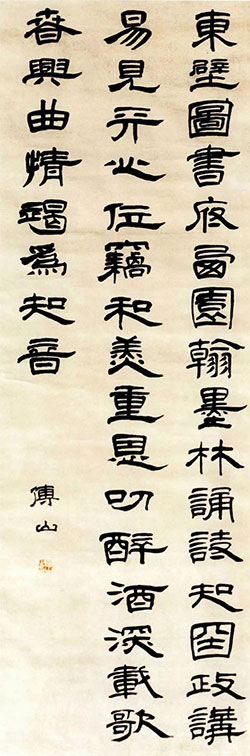 東壁圖書府西園翰墨林誦詩知国政講
易見天心位竊和羹重恩叨醉酒深載歌
春興曲情竭爲知音
傅山